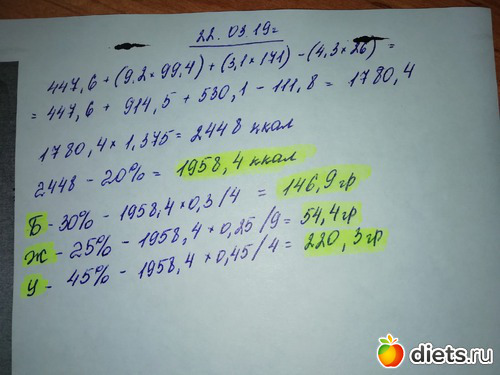 22.03.19г
447,6 + (9,2×99,4) + (3,1×171) - (4,3×26) =
= 447,6 + 914,5 + 530,1 - 111,8 = 1780,4
1780,4 × 1,375 = 2448 ккал
2448 - 20% = 1958,4 ккал
Б - 30% - 1958,4 × 0,3/4 = 146,9 гр
Ж - 25% - 1958,4 × 0,25/9 = 54,4 гр
У - 45% - 1958,4 × 0,45/4 = 220,3 гр
diets.ru